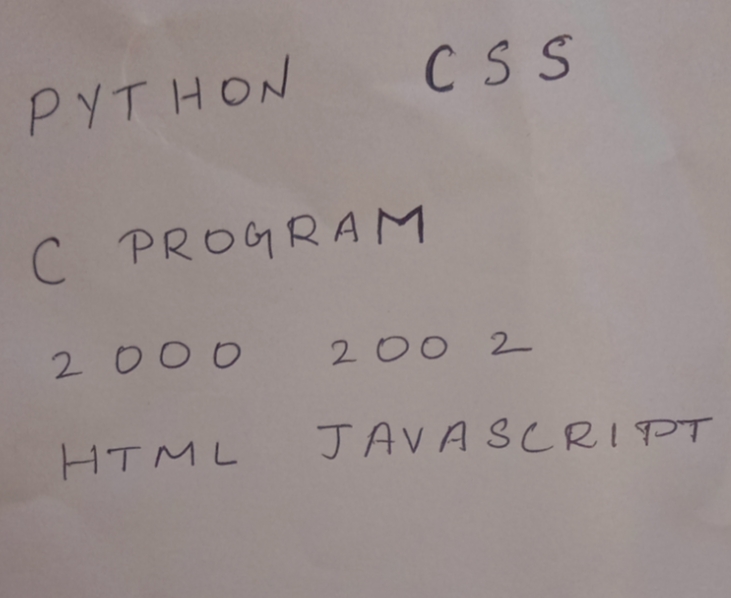 PYTHON CSS
C PROGRAM
2000 2002
HTML JAVASCRIPT